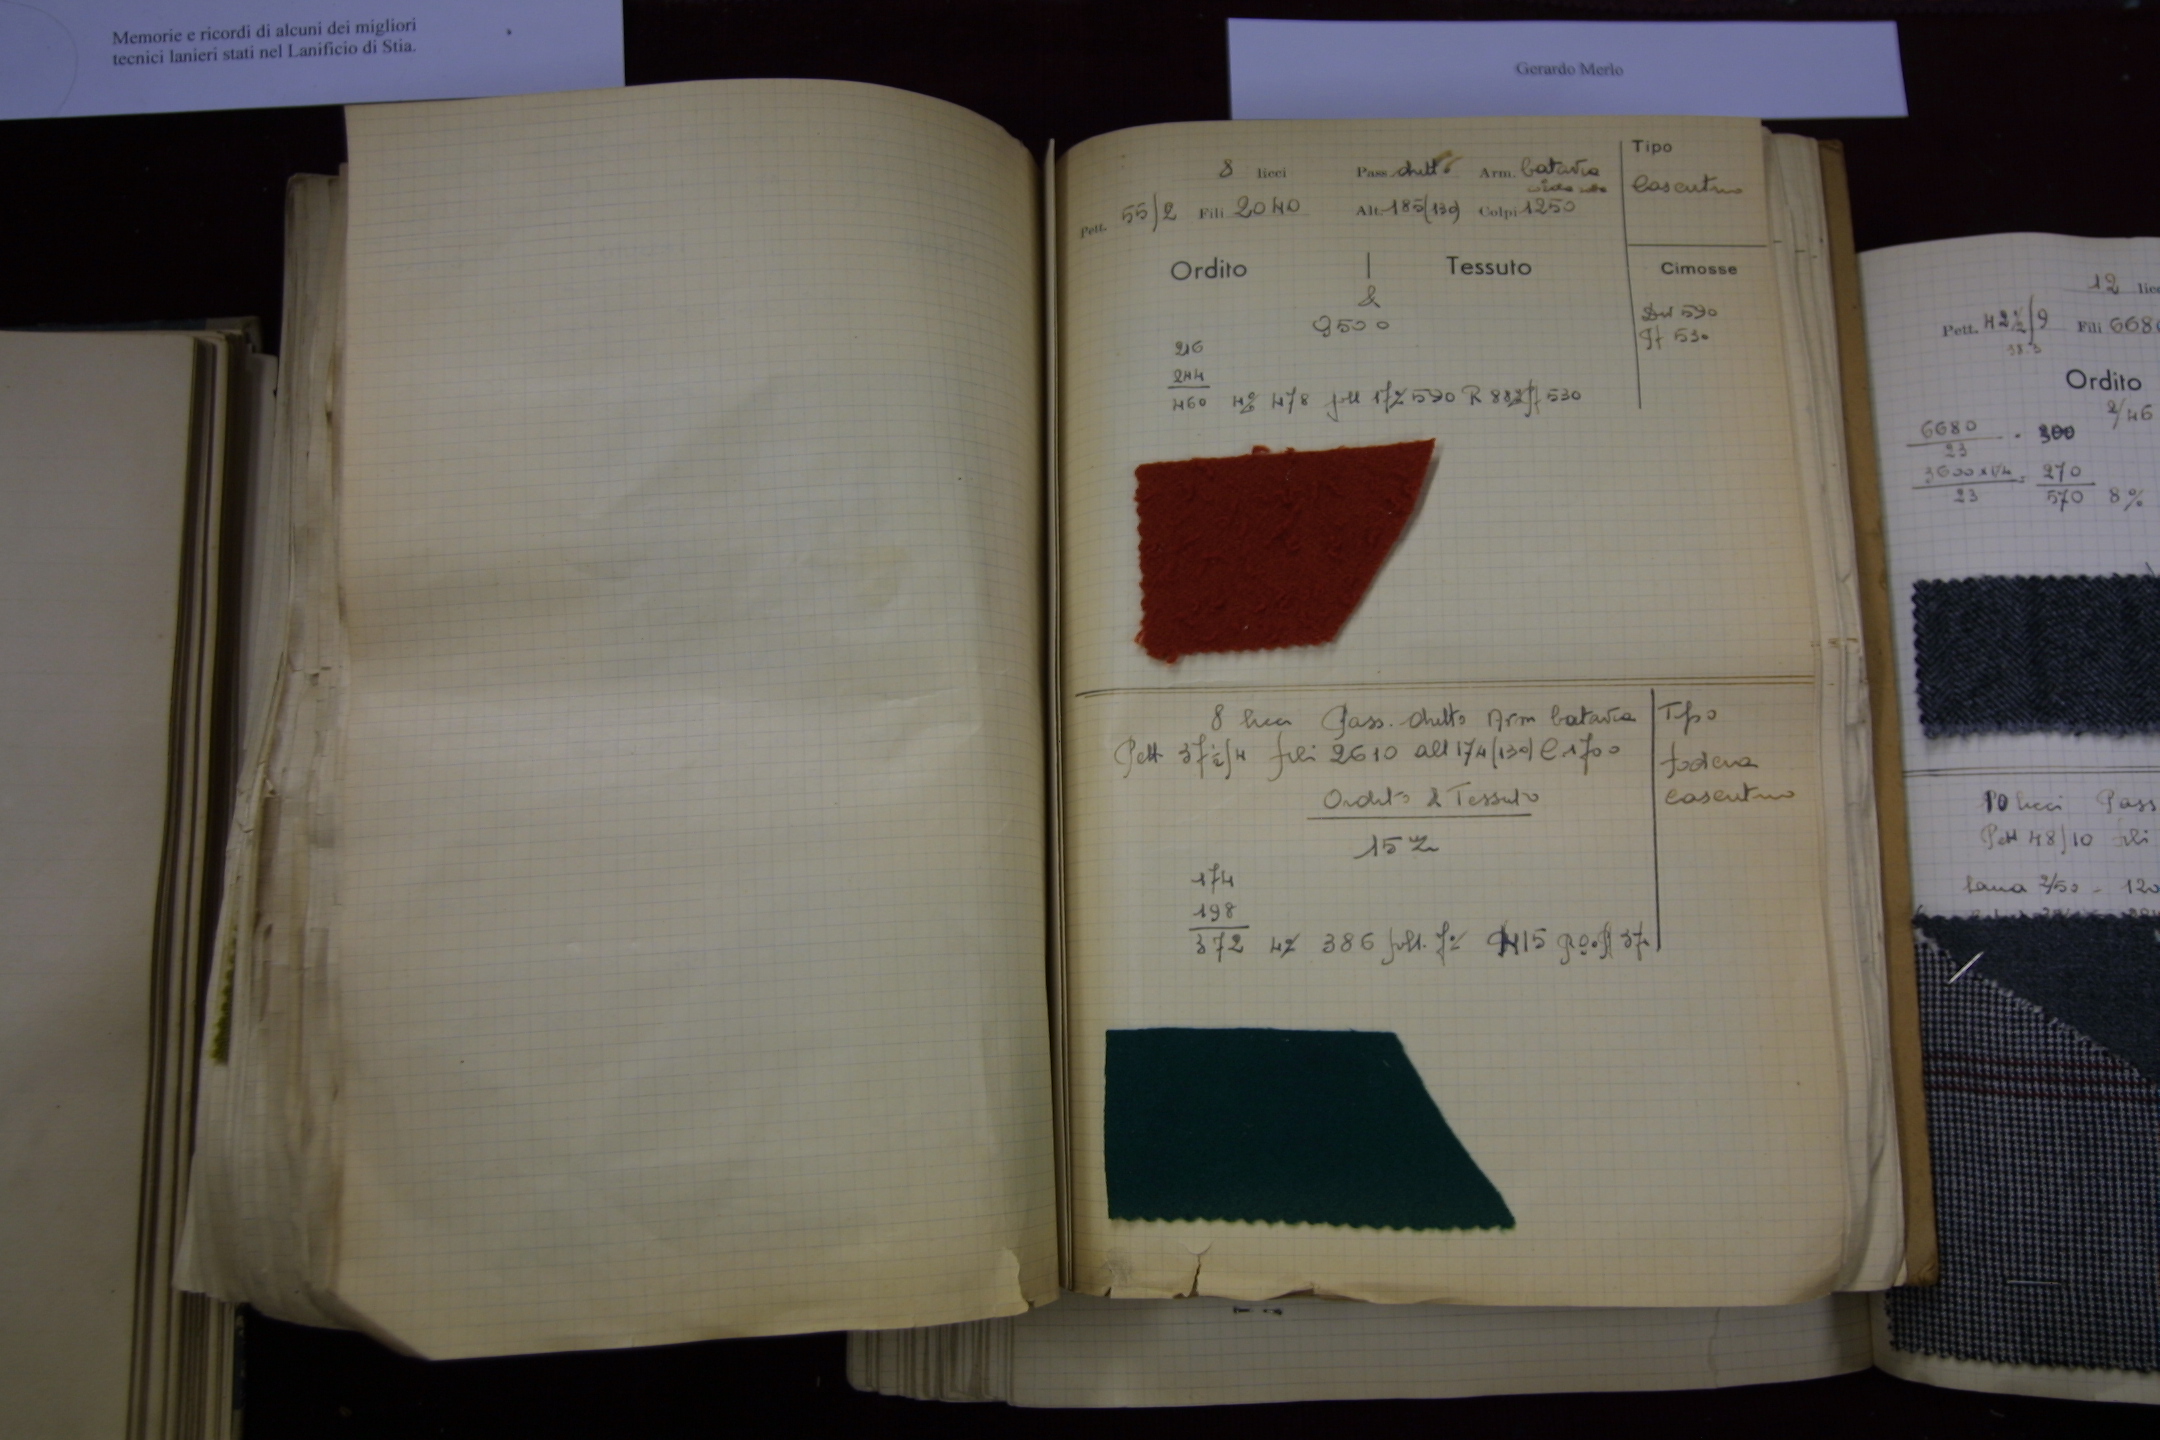 Memorie e ricordi di alcuni dei migliori
tecnici lanieri stati nel Lanificio di Stia.
Gerardo Merlo
8 licci Pass. dritto Arm. batavia
Pett. 55/2 Fili 2040 Alt. 185(130) Colpi 1250
Tipo
Casentino
Ordito | Tessuto
&
9500
Cimosse
530
216
244
460 4% 478 590 R 530
8 licci Pass. dritto Arm batavia
Pett 37½/4 fili 2610 alt 174(130) C. 1700
Ordito & Tessuto
15
Tipo
fodera
casentino
174
198
372 4% 386 415
12 licc
Pett. 42½/9 Fili 668
Ordito
2/46
6680
23
270
23
570 8%
10 licci Pass
Pett 48/10 fili
lana 2/50 - 120